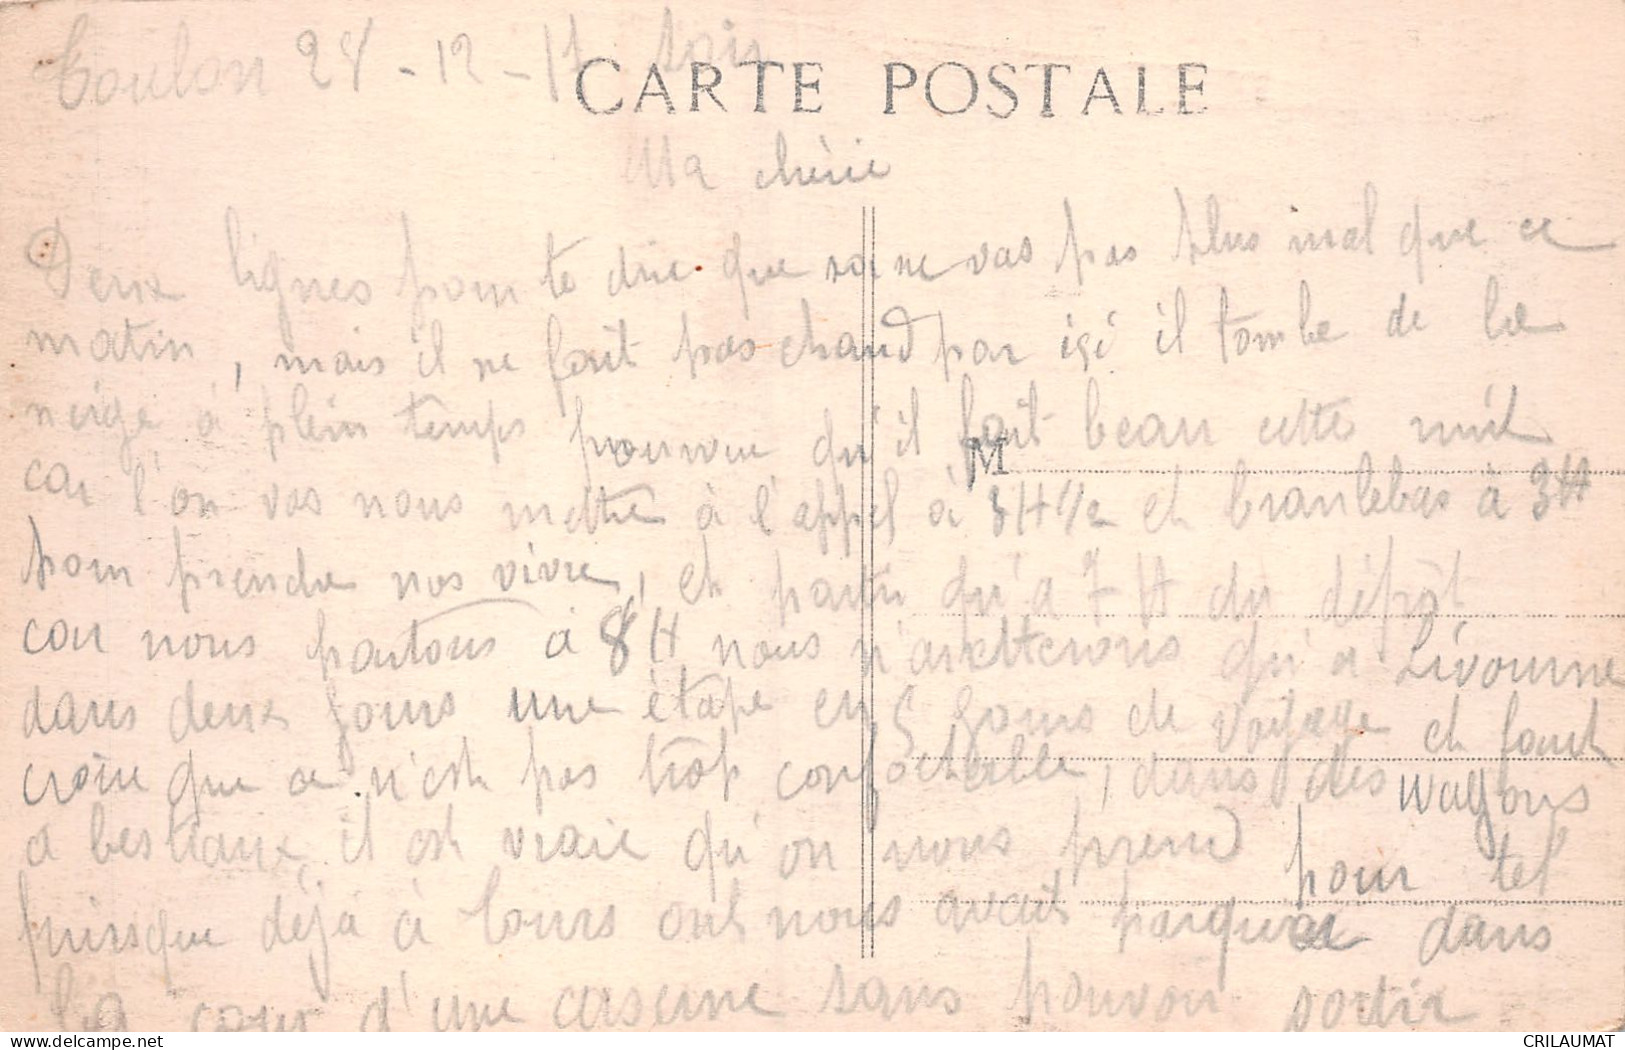 Toulon 28-12-17 soir
CARTE POSTALE
Ma chérie
Deux lignes pour te dire que sa ne vas pas plus mal que ce
matin, mais il ne fait pas chaud par isi il tombe de la
neige à plein temps pourvue qu'il fait beau cette nuit
M
car l'on vas nous mettre à l'appel à 8H 1/2 et branlebas à 3H
pour prendre nos vivre, et partir qu'a 7H du dépôt
car nous partons à 8H nous n'arretterons qu'a Livourne
dans deux jours une étape en 5 jours de voyage et faut
croire que ce n'est pas trop confortable, dans des wagons
a bestiaux, il est vraie qu'on nous prend pour tel
puisque déjà à Tours ont nous avait parquer dans
la cour d'une caserne sans pouvoir sortir
CRILAUMAT